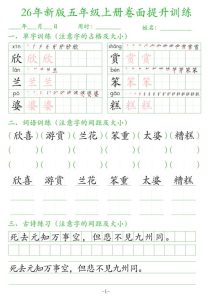 26年新版五年级上册卷面提升训练
年 月 日 用时： 姓名：
一、单字训练（注意字的占格及大小）
xīn shǎng
欣 欣 欣 赏 赏 赏
lán bèn
兰 兰 兰 笨 笨 笨
pó gāo
婆 婆 婆 糕 糕 糕
二、词语训练（注意字的间距及大小）
欣喜 游赏 兰花 笨重 太婆 糟糕
( ) ( ) ( ) ( ) ( ) ( )
( ) ( ) ( ) ( ) ( ) ( )
欣喜 游赏 兰花 笨重 太婆 糟糕
三、古诗练习（注意字的间距及大小）
死去元知万事空，但悲不见九州同。
死去元知万事空，但悲不见九州同。
-1-